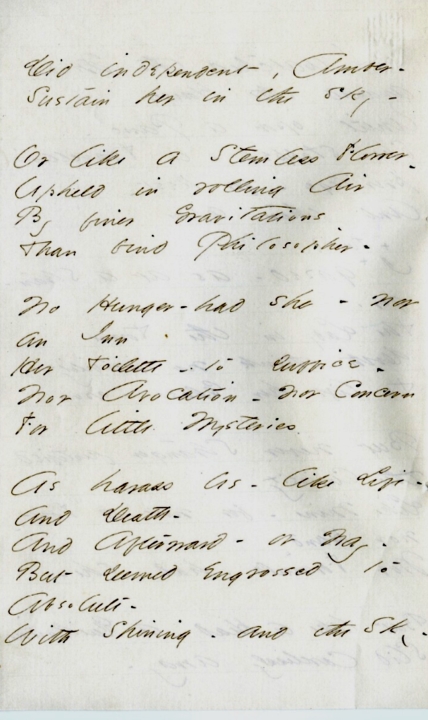 Did independent, Amber -
Sustain her in the Sky -
Or like a Stemless Flower -
Upheld in rolling Air
By finer Gravitations
Than bind Philosopher -
No Hunger - had she - nor
an Inn -
Her Toilette - to suffice -
Nor Avocation - nor Concern
For little Mysteries
As harass us - like Life -
And Death -
And Afterward - or Nay -
But seemed Engrossed to
Absolute -
With Shining - and the Sky -